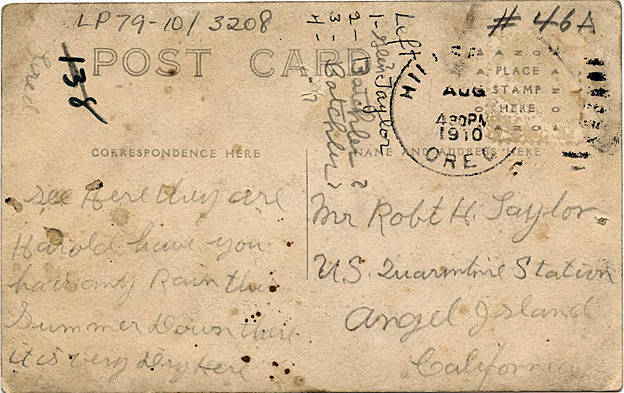 LP79-10/3208
# 46A
138
POST CARD
Left
1- Gen Taylor
2- Batchler?
3- Batchler?
4- ?
PLACE
STAMP
HERE
AUG
430PM
1910
OREG
CORRESPONDENCE HERE
NAME AND ADDRESS HERE
See Here they are
Harold have you
had any Rain this
Summer Down there
it is very Dry Here
Mr Robt H. Taylor
U.S. Quarantine Station
Angel Island
California